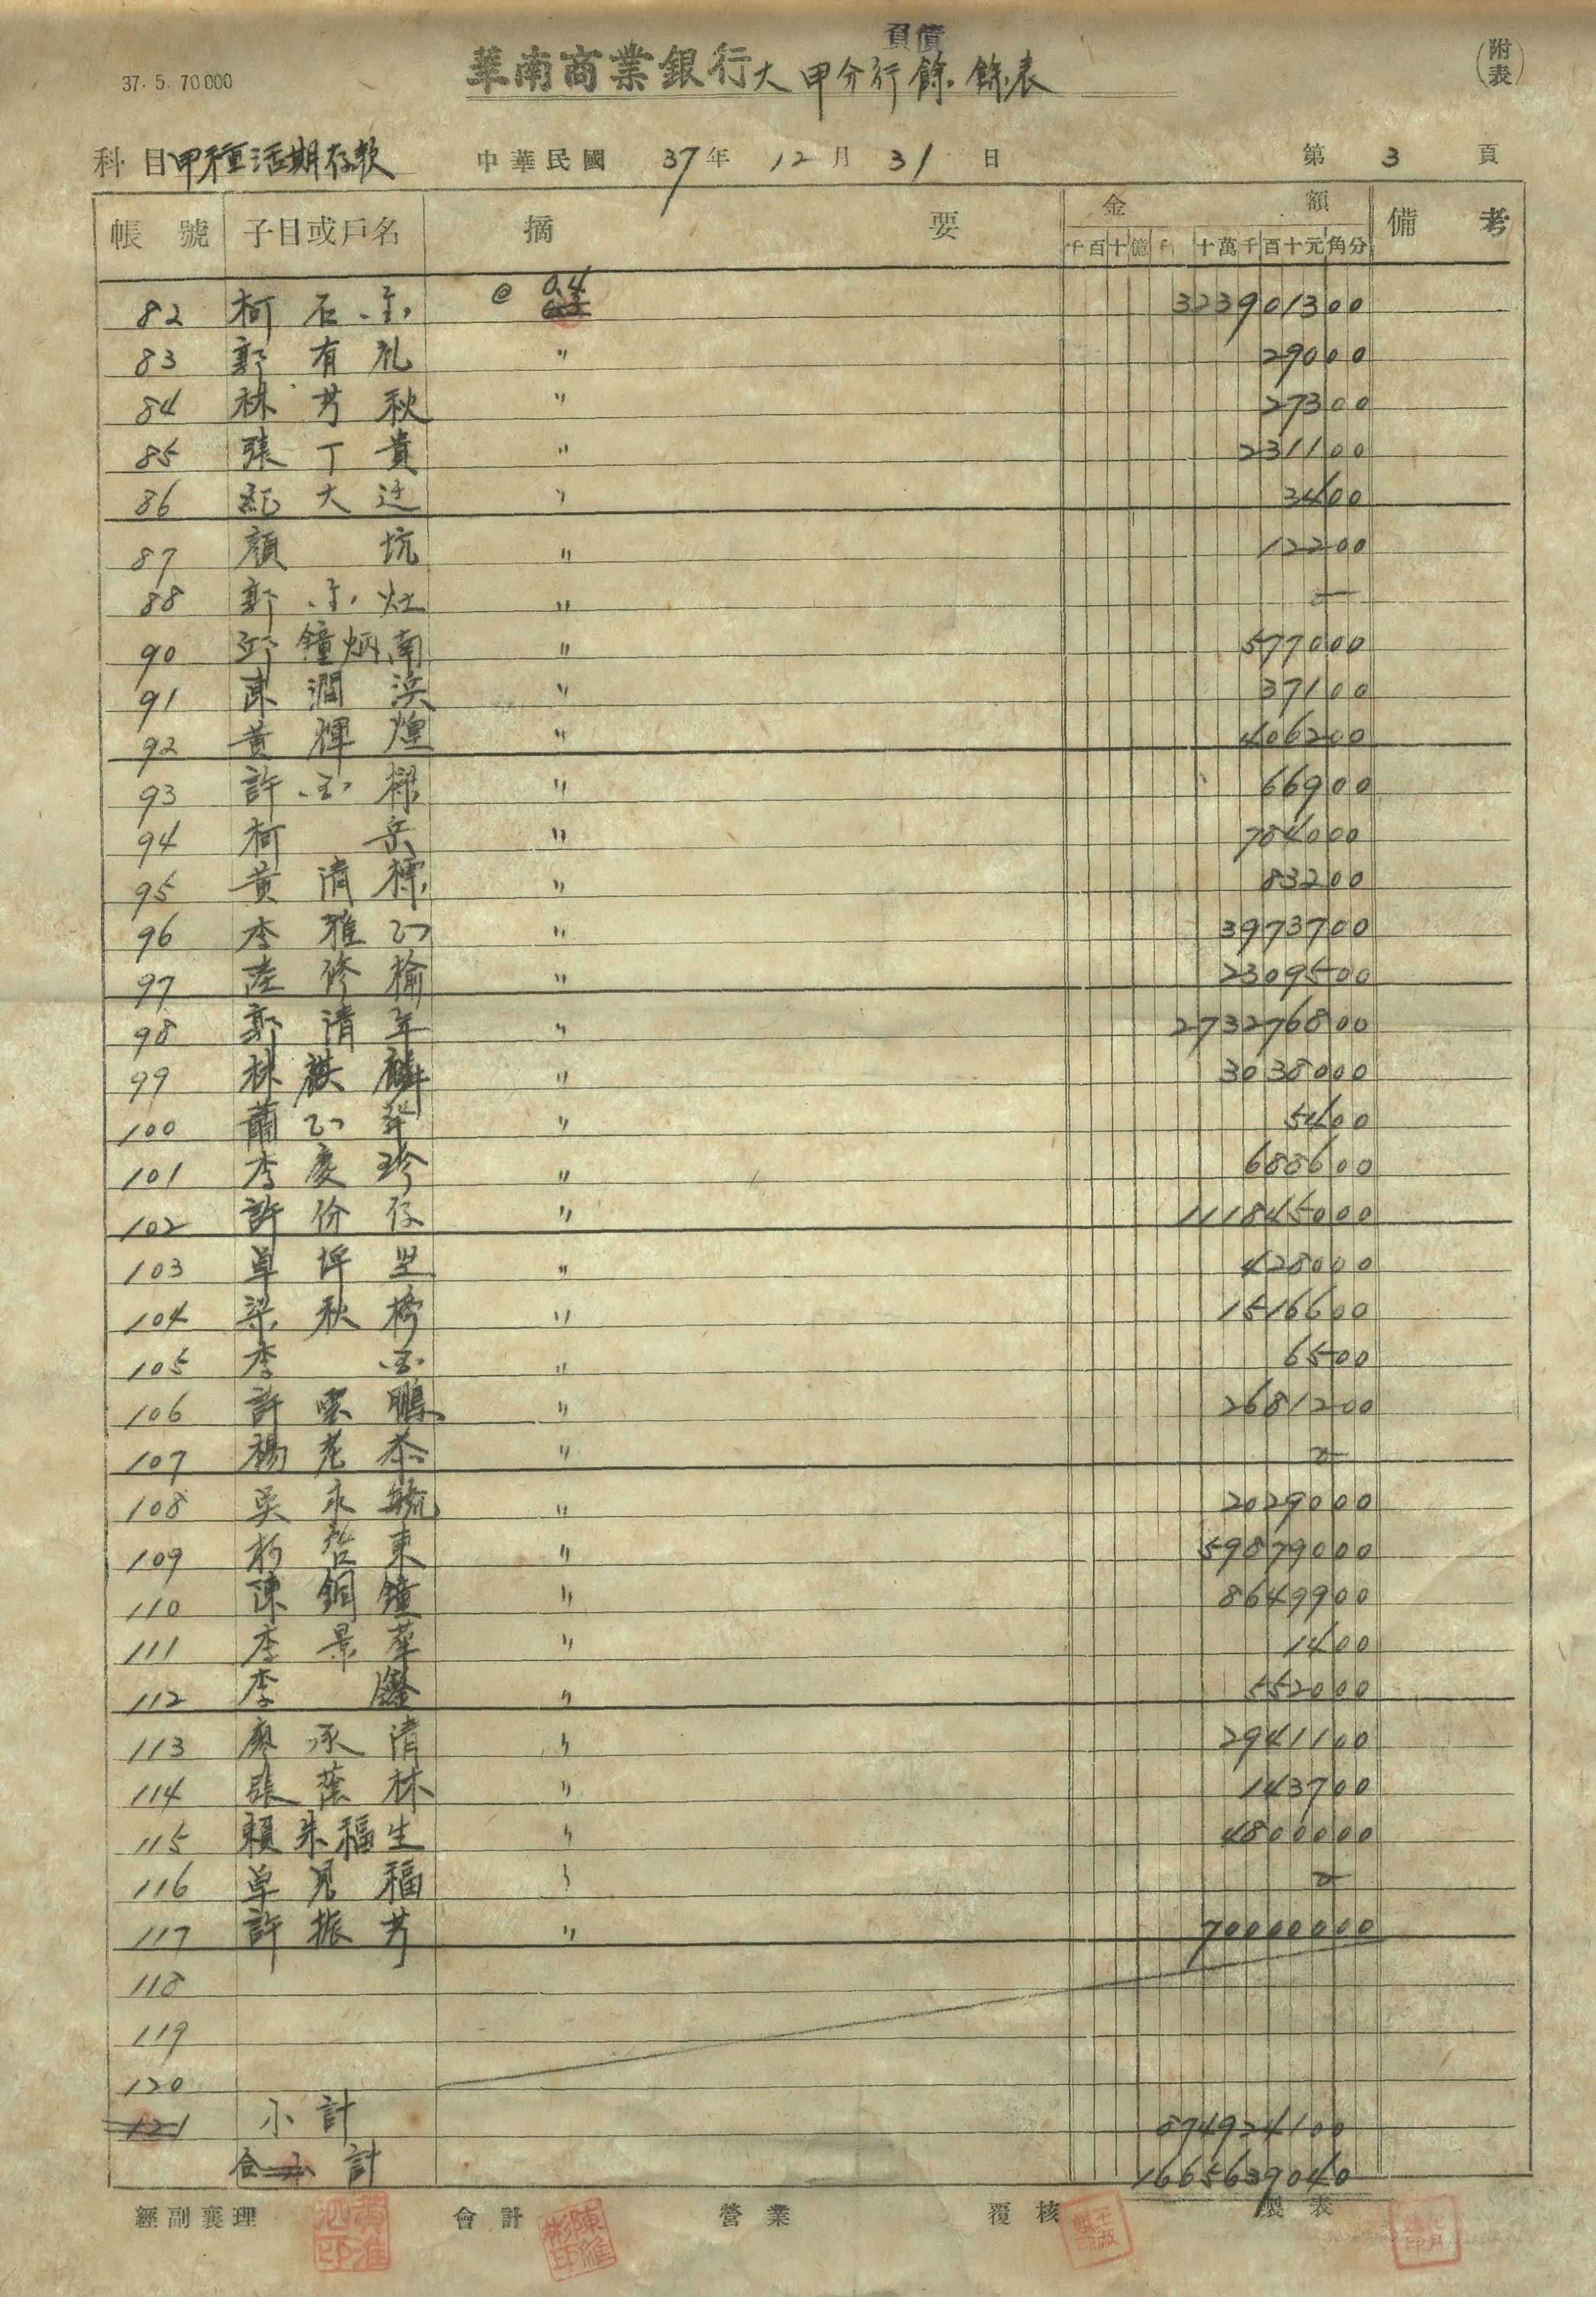 負債
華南商業銀行大甲分行餘額表
(附表)
37. 5. 70000
科目 甲種活期存款 中華民國 37年 12月 31日 第 3 頁
帳號 子目或戶名 摘要 金額 備考
千百十億千 十萬千百十元角分
82 柯石金 @ 0.4 323901300
83 郭有礼 〃 29000
84 林芳秋 〃 27300
85 張丁貴 〃 231100
86 紀大迁 〃 3400
87 顏坑 〃 12200
88 郭金灶 〃 0
90 邱鐘炳南 〃 577000
91 陳澗浜 〃 37100
92 黃輝煌 〃 406200
93 許金樑 〃 66900
94 柯岳 〃 784000
95 黃清標 〃 83200
96 李雅心 〃 3973700
97 陸修榆 〃 2309500
98 郭清年 〃 273276800
99 林麒麟 〃 3038000
100 蕭心 〃 5400
101 李慶珍 〃 688600
102 許份仔 〃 111845000
103 卓坪里 〃 428000
104 梁秋橋 〃 1516600
105 李金 〃 6500
106 許雲鵬 〃 2681200
107 楊老恭 〃 0
108 吳永毓 〃 2029000
109 柯哲東 〃 59879000
110 陳銅鐘 〃 8649900
111 李景 〃 1400
112 李鐙 〃 552000
113 廖承清 〃 2941100
114 張蔭林 〃 143700
115 賴朱福生 〃 4800000
116 卓見福 〃 0
117 許振芳 〃 70000000
118
119
120
121 小計 874924100
合計 1665639040
經副襄理 會計 營業 覆核 製表